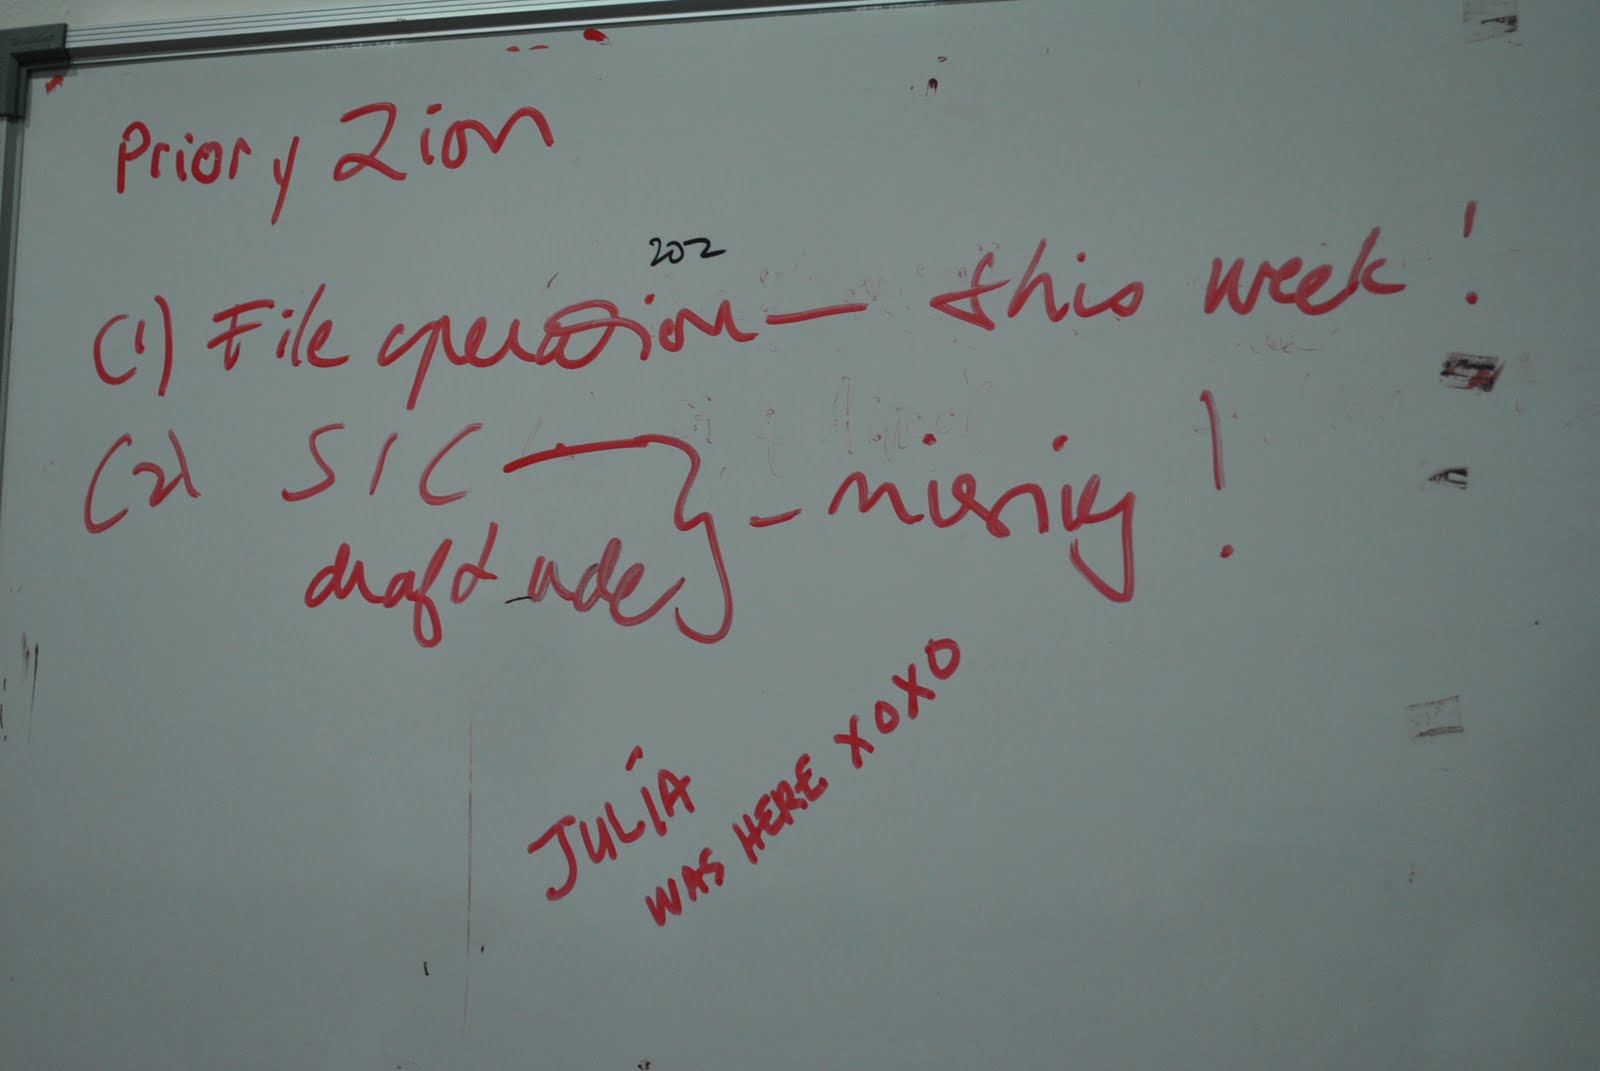 Priory Zion
202
(1) File operation — this week!
(2) SIC
draft - missing!
JULIA
WAS HERE XOXO